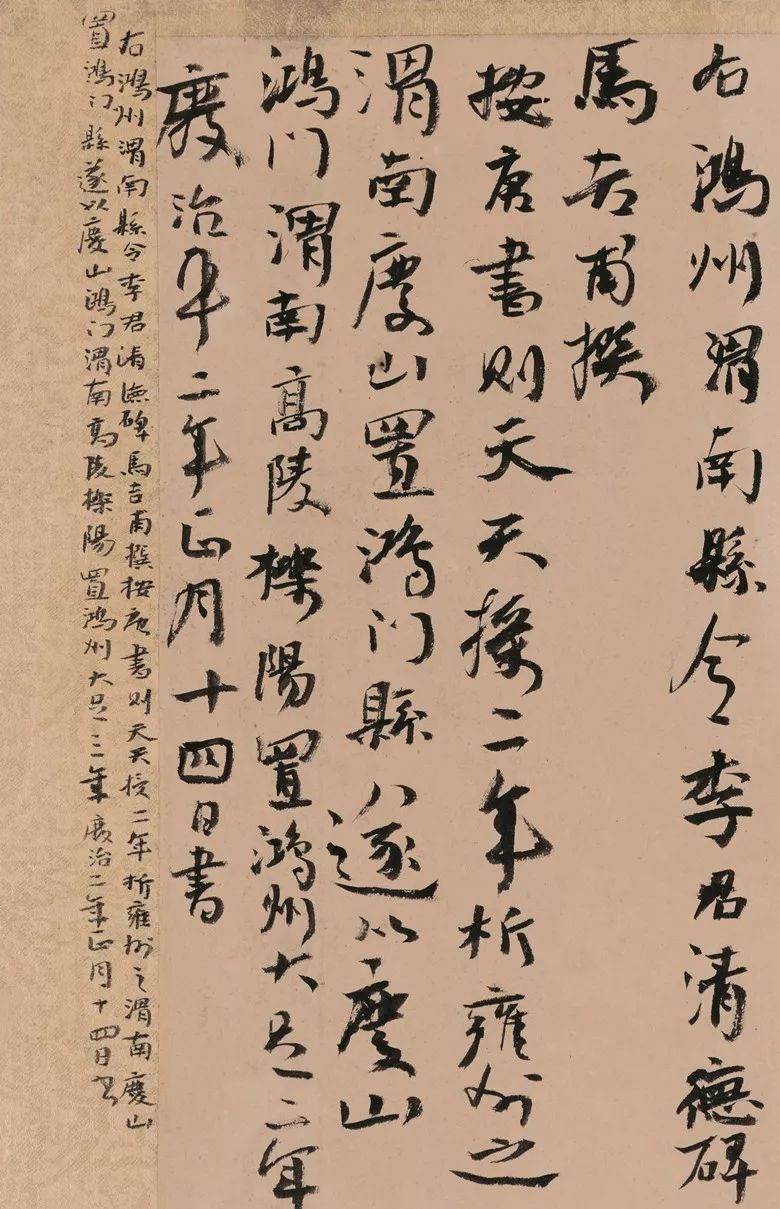 右鴻州渭南縣令李君清德碑
馬吉甫撰
按唐書則天天授二年析雍州之
渭南慶山置鴻門縣八遂以慶山
鴻門渭南高陵櫟陽置鴻州大足二年
廢治平二年正月十四日書
右鴻州渭南縣令李君清德碑馬吉甫撰按唐書則天天授二年析雍州之渭南慶山
置鴻門縣遂以慶山鴻門渭南高陵櫟陽置鴻州大足三年廢治二年正月十四日書